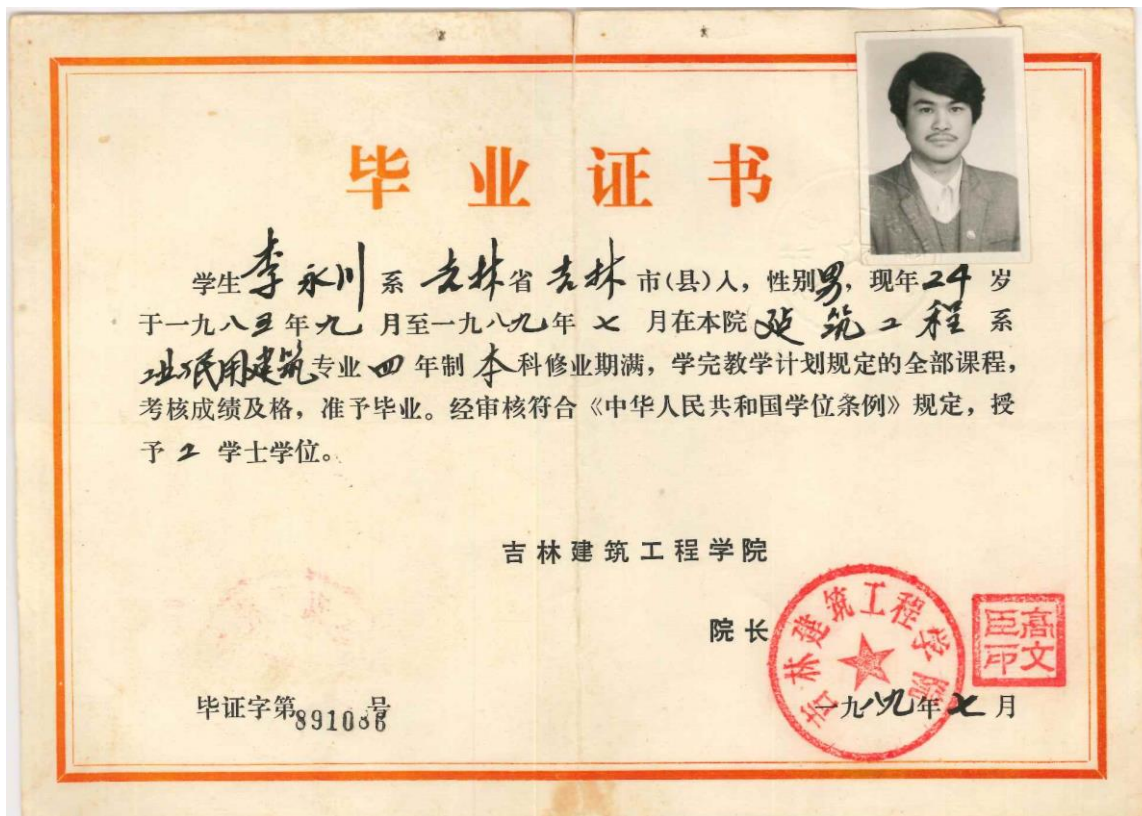 毕业证书
学生李永川系吉林省吉林市(县)人，性别男，现年24岁
于一九八五年九月至一九八九年七月在本院建筑工程系
工业民用建筑专业四年制本科修业期满，学完教学计划规定的全部课程，
考核成绩及格，准予毕业。经审核符合《中华人民共和国学位条例》规定，授
予工学士学位。
吉林建筑工程学院
院长
吉林建筑工程学院
高文
臣印
毕证字第891086号
一九八九年七月